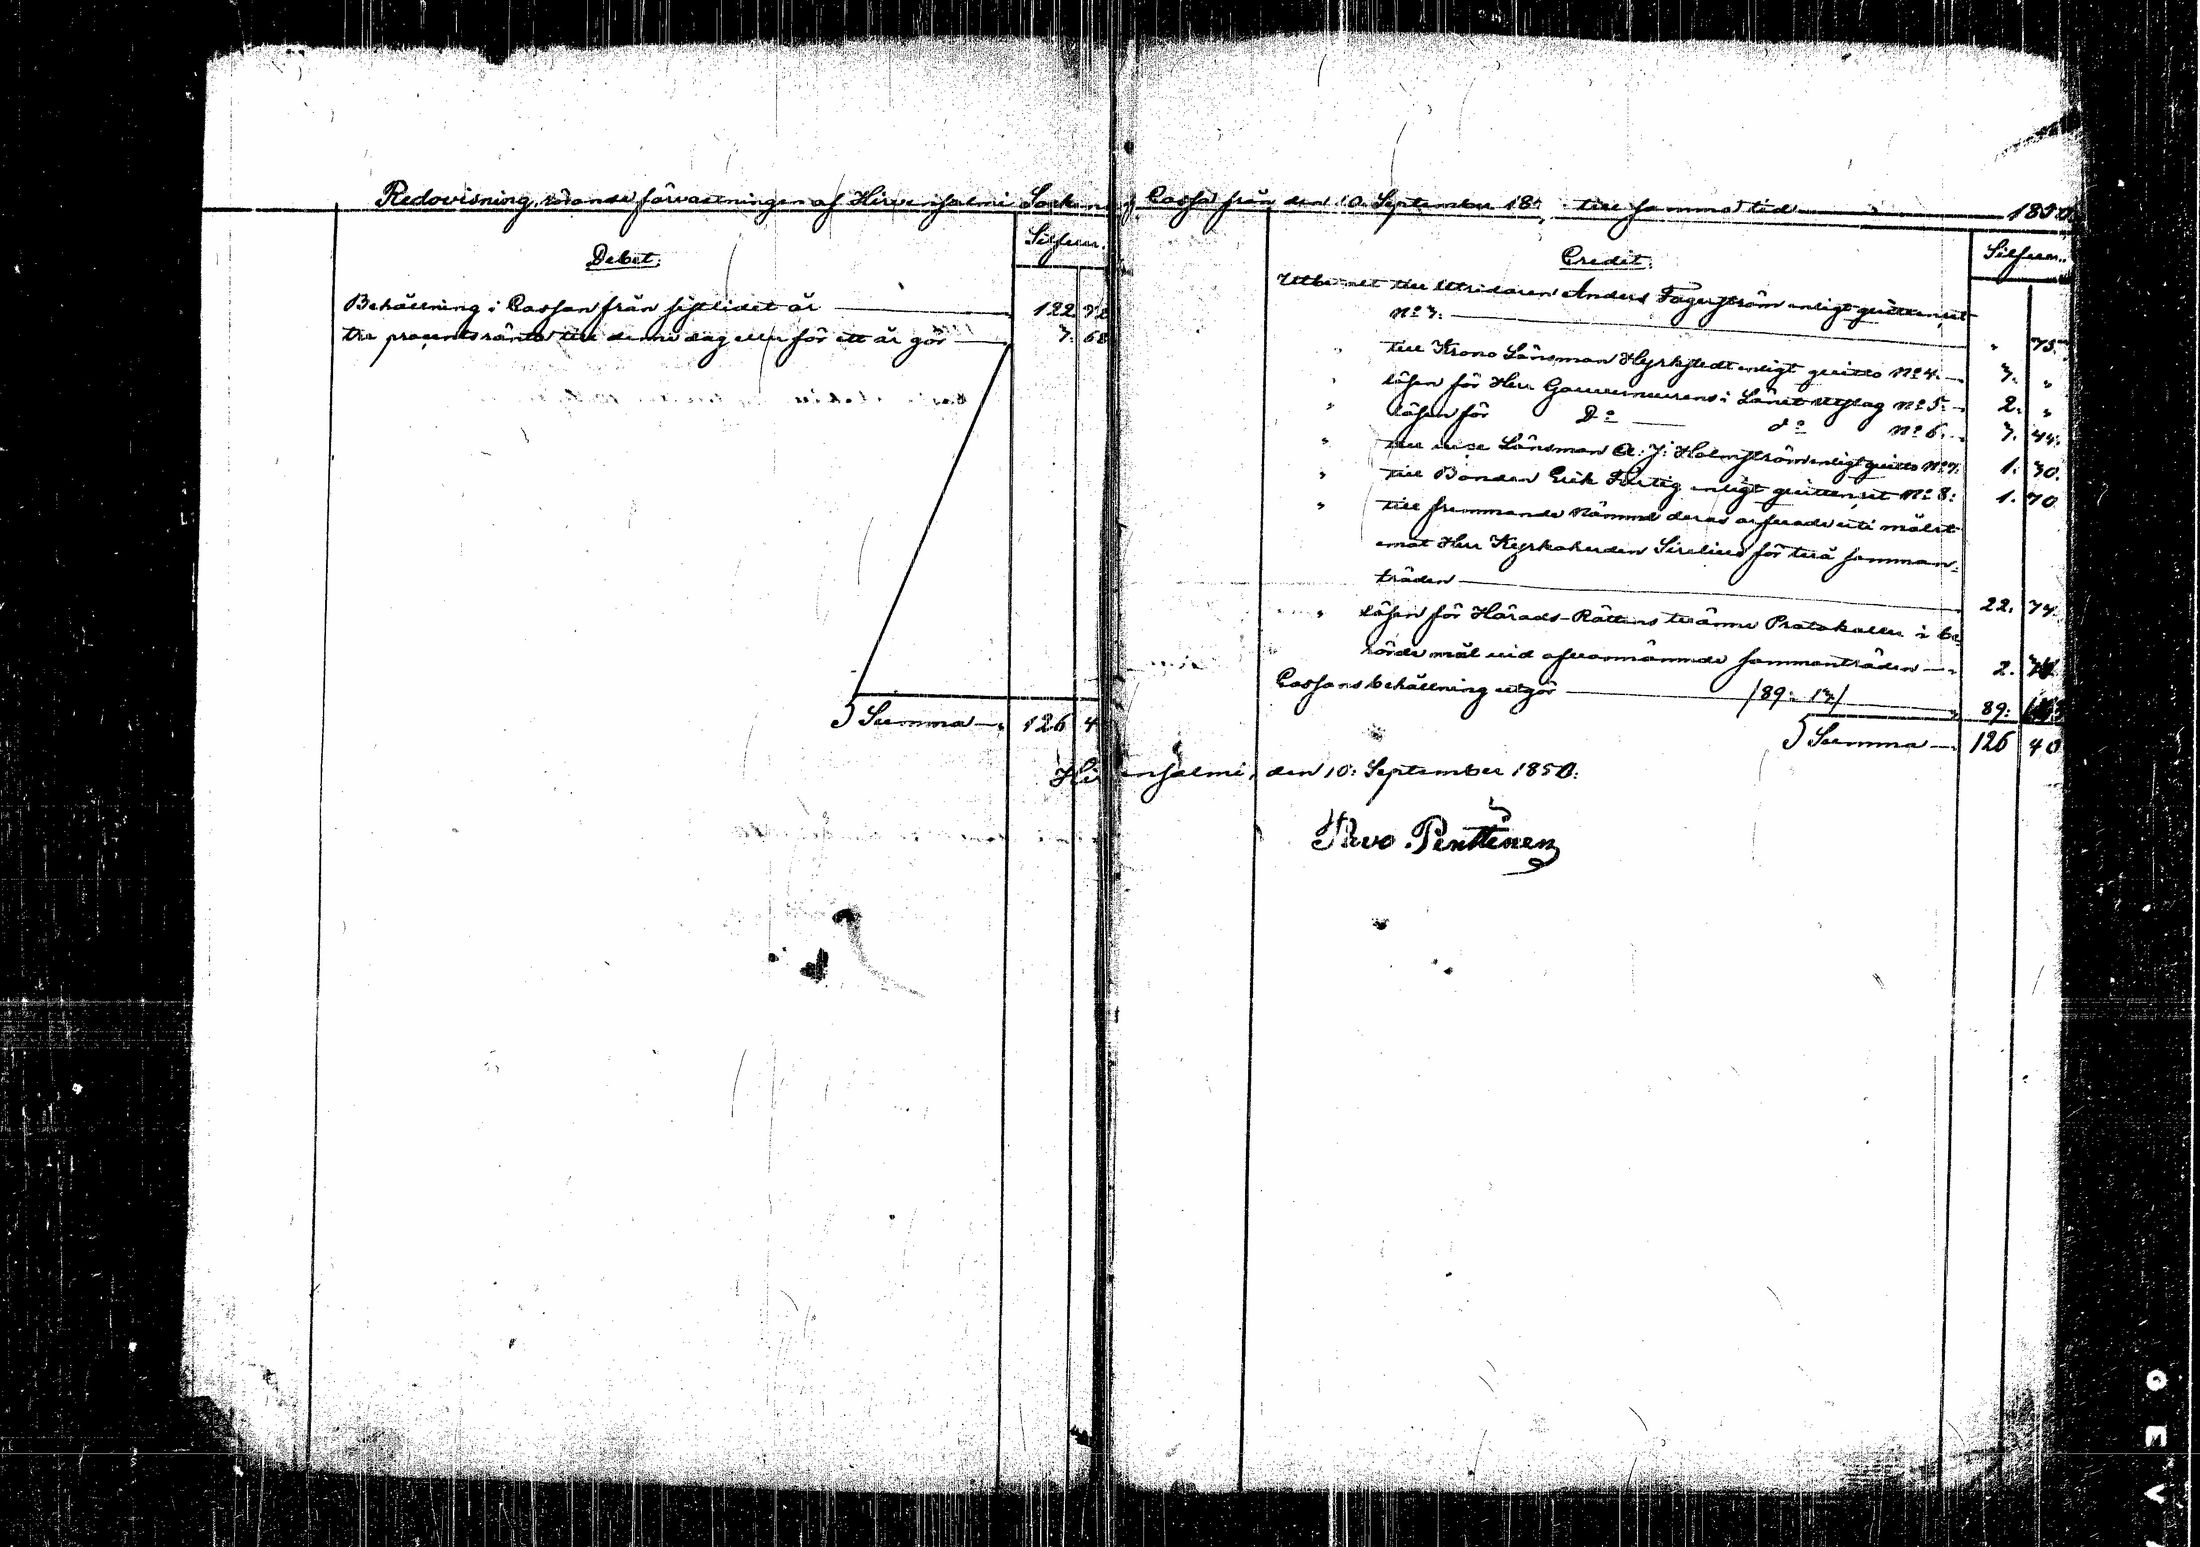 Redovisning, rörande förvaltningen af Hirvensalmi Sockens Cassa från den 10. September 18 till samma tid 1850.
Debet. Silfver.
Behållning i Cassan från sistlidet år 122.
tre procents ränta till denne dag eller för ett år gör 3. 68
Summa 126 4
Credit. Silfver.
till Utridaren Anders Fagerström enligt quittenset
No 3. " 75.
" till Krono Länsman Hyrkstedt enligt quitto No 4. 3. "
" lösen för Herr Gouverneurens i Länet utslag No 5. 2. "
" lösen för Do do No 6. 3. 44.
" till vice Länsman A. J. Holmström enligt quitto No 7. 1. 30.
" till Bonden Erik enligt quittenset No 8. 1. 70
" till fremmande Nämnd deras arfvode uti målet
emot Herr Kyrkoherden Sirelius för två samman-
träden 22. 74.
" lösen för Härads-Rättens tvänne Protokoller i be
rörde mål vid ofvannämnde sammanträden 2.
Cassans behållning utgör /89: 13/ 89:
Summa 126 40
Hirvensalmi, den 10. September 1850.
Penttinen